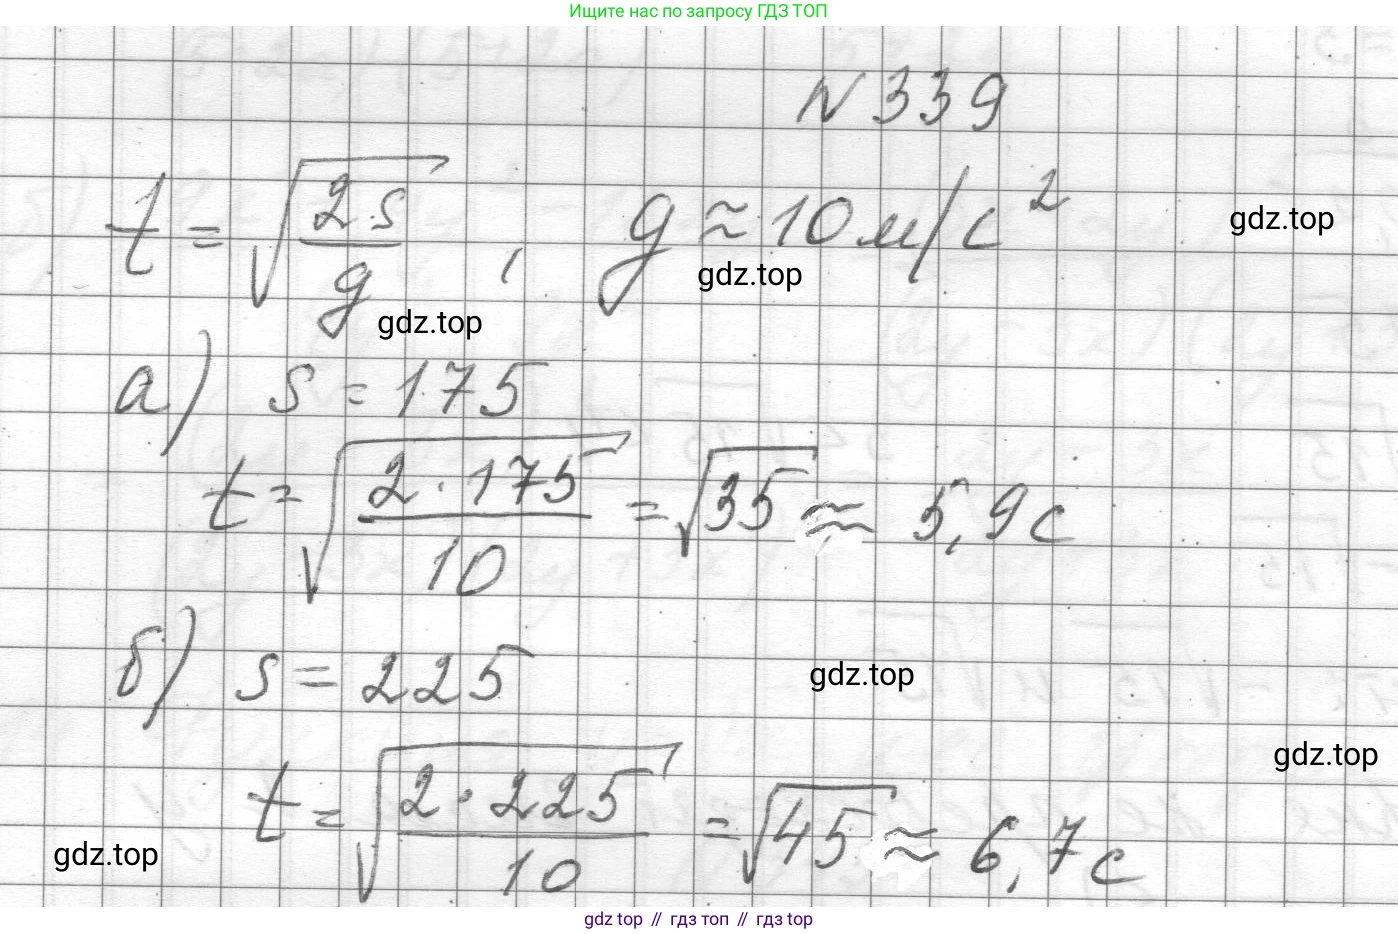 Ищите нас по запросу ГДЗ ТОП
N 339
t = √(2s/g) , g ≈ 10 м/с²
gdz.top
gdz.top
gdz.top
а) s = 175
t = √(2·175/10) = √35 ≈ 5,9 с
б) s = 225
gdz.top
gdz.top
t = √(2·225/10) = √45 ≈ 6,7 с
gdz.top
gdz top // гдз топ // gdz top